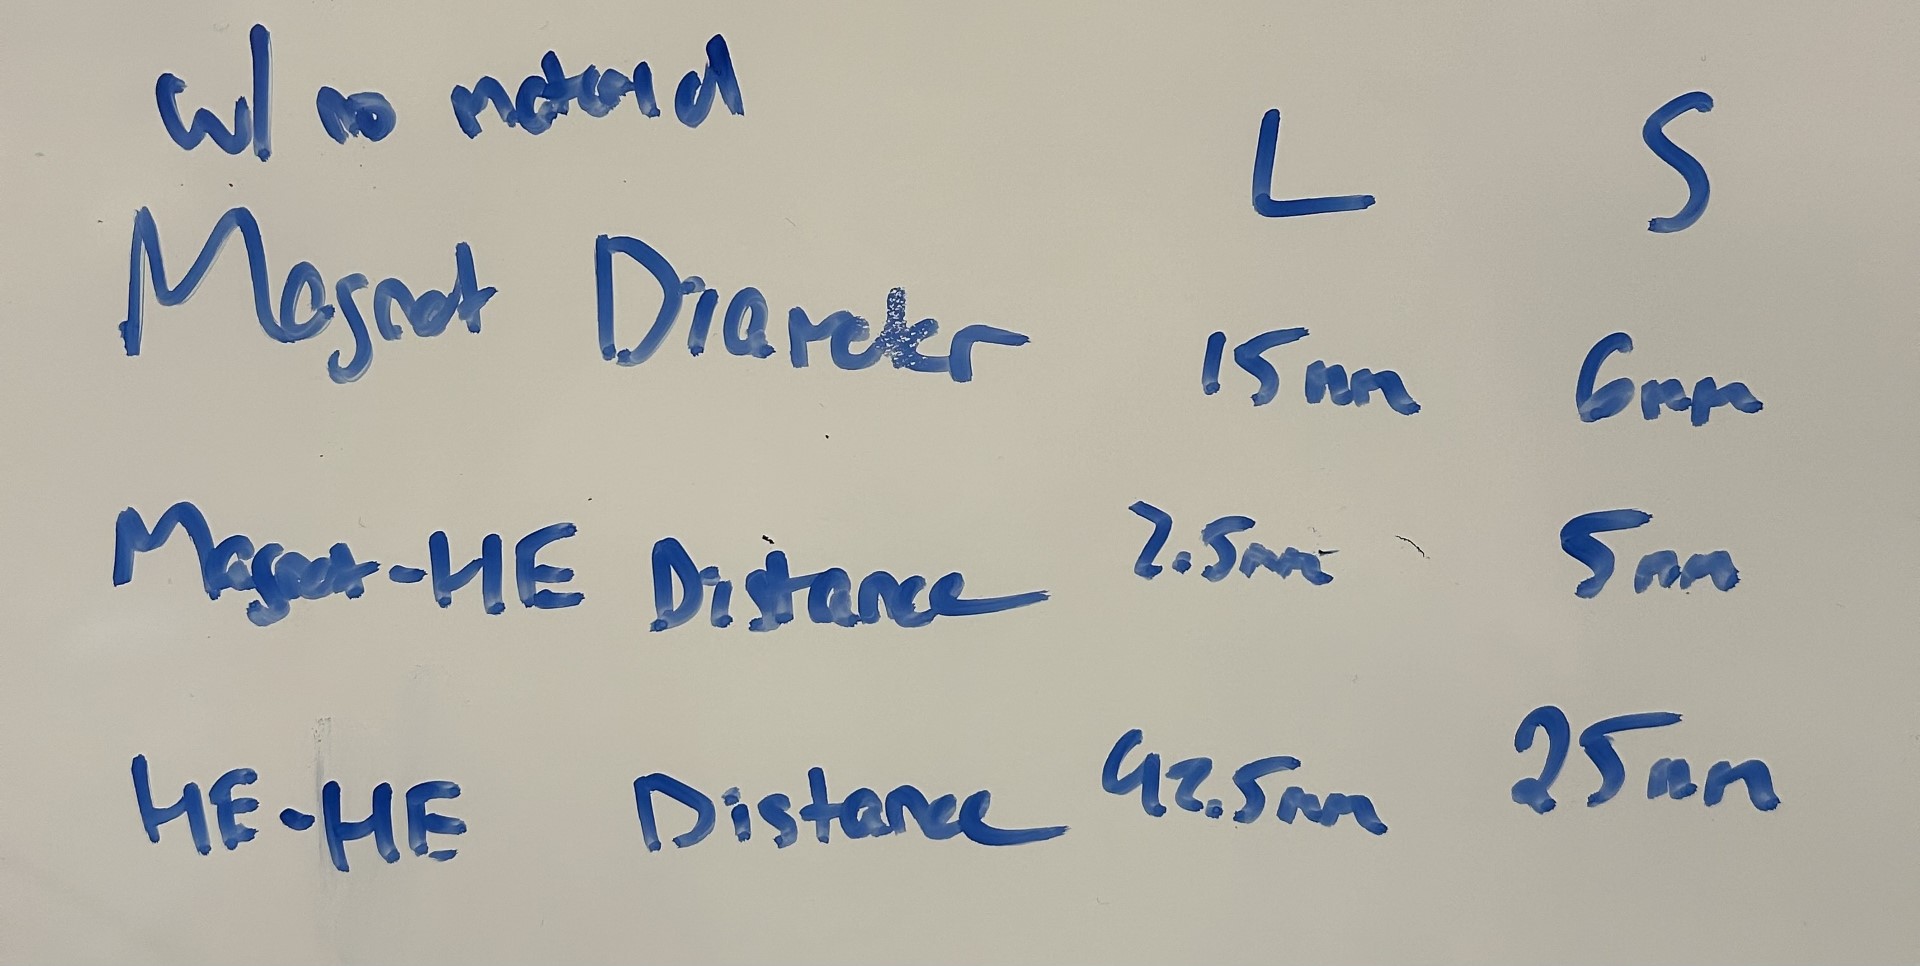 w/ no material
L S
Magnet Diameter 15mm 6mm
Magnet-HE Distance 2.5mm 5mm
HE-HE Distance 42.5mm 25mm